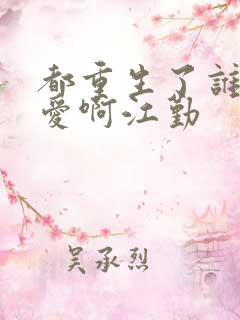 都重生了誰
愛啊江勤
吴承烈